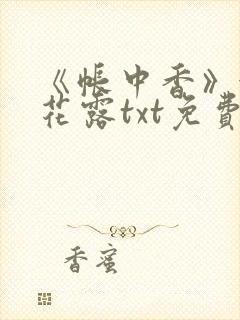 《帐中香》
花露txt免費
香蜜